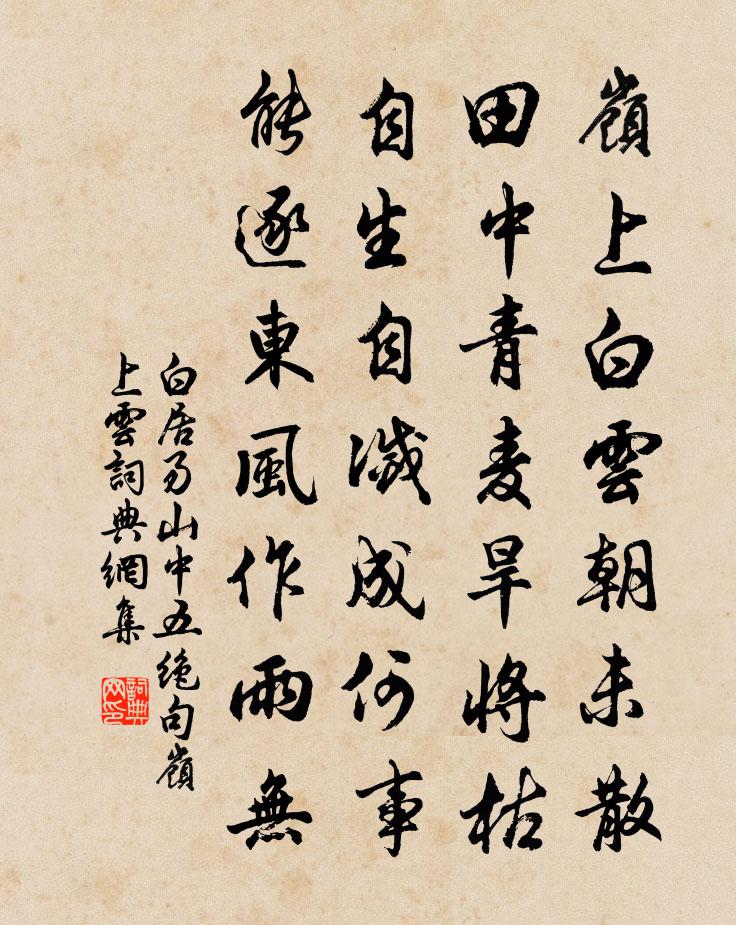 嶺上白雲朝未散
田中青麦旱將枯
自生自滅成何事
能逐東風作雨無
白居易山中五绝句嶺
上雲詞典網集
詞典
网印